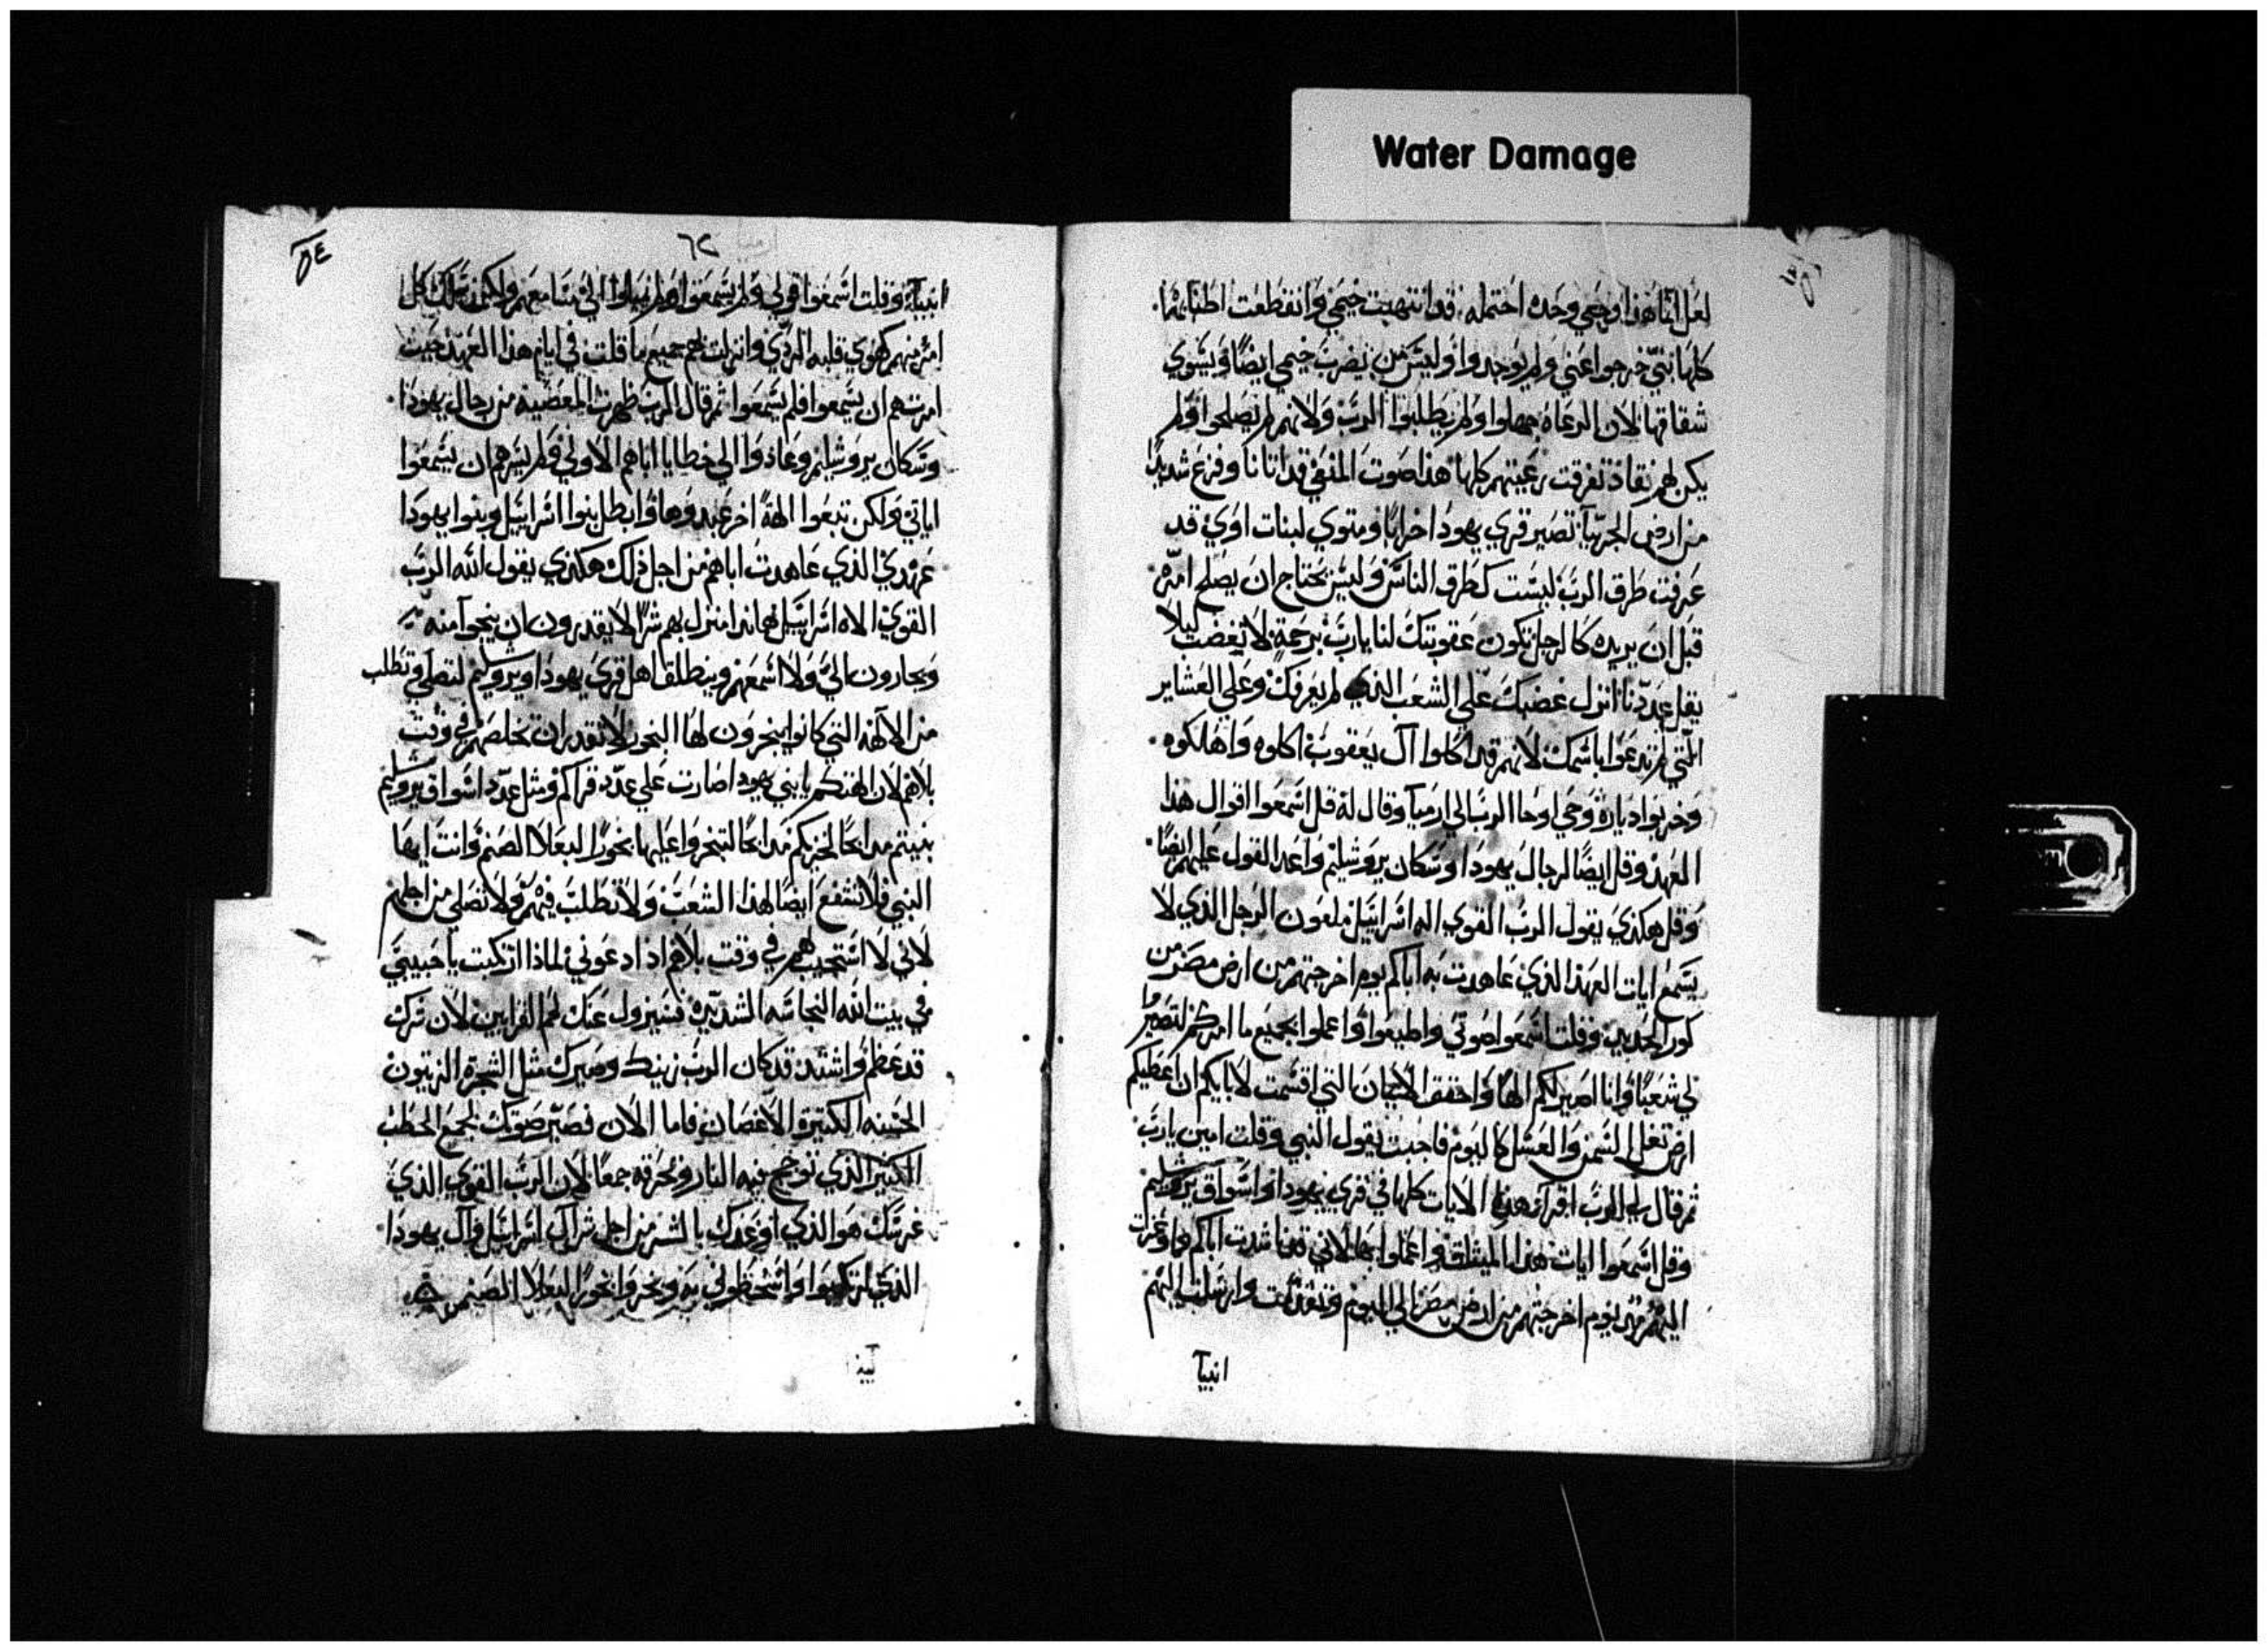 Water Damage
لعل انا هذا وجعي وحده احتمله قد انتهبت خيمي وانقطعت اطنابها
كلها بني خرجوا عني ولم يوجدوا وليس من يضرب خيمي ايضًا ويسوي
شقاقها لان الرعاه جهلوا ولم يطلبوا الرب ولانهم لم يصلحوا ولم
يكن لهم نفاذ تفرقت رعيتهم كلها هذا صوت المنفي قد اتانا وفزع شديدًا
من ارض الجربيا تصير قري يهودا خرابًا ومتوي لبنات اوي قد
عرفت طرق الرب ليست كطرق الناس وليس يحتاج ان يصلح امره
قبل ان يريده كالرجل تكون عقوبتك لنا يارب برحمة لا تغضب ليلا
يقل عددنا انزل غضبك علي الشعب الذي لم يعرفك وعلي العشاير
التي لم تدعوا باسمك لانهم قد اكلوا آل يعقوب اكلوه واهلكوه
وخربوا دياره وحي اوحا الرب الي ارميا وقال له قل اسمعوا اقوال هذا
العهد وقل ايضًا لرجال يهودا وسكان يروشليم واعد القول عليهم ايضًا
وقل هكذي يقول الرب القوي اله اسراييل ملعون الرجل الذي لا
يسمع ايات العهد الذي عاهدت به اباكم يوم اخرجتهم من ارض مصر من
كور الحديد وقلت اسمعوا صوتي واطيعوا واعملوا بجميع ما امركم لتصيروا
لي شعبًا وانا اصير لكم الهًا واحقق الايمان التي اقسمت لابايكم ان اعطيكم
ارض تغل السمن والعسل كاليوم فاجبت يقول النبي وقلت امين يارب
ثم قال لي الرب اقرا هذه الايات كلها في قري يهودا واسواق يروشليم
وقل اسمعوا ايات هذا الميثاق واعملوا بها لاني ناشدت اباكم
اليهم يوم اخرجتهم من ارض مصر الي اليوم وتقدمت وارسلت اليهم
انبيا
٥٤
٦٢
انبيا وقلت اسمعوا قولي ولم يسمعوا ولم يميلوا الي مسامعهم ولكن سلك كل
امر منهم كهوي قلبه الردي وانزلت بهم جميع ما قلت في ايام هذا العهد حيث
امرتهم ان يسمعوا فلم يسمعوا ثم قال الرب ظهرت المعصية من رجال يهودا
وسكان يروشليم وعادوا الي خطايا اباهم الاولي ولم يسرهم ان يسمعوا
اياتي ولكن تبعوا الهة اخر عبدوها وابطل بنوا اسراييل وبنوا يهودا
عهدي الذي عاهدت اباهم من اجل ذلك هكذي يقول الله الرب
القوي الاه اسراييل هانذا منزل بهم شرًا لا يقدرون ان ينجوا منه
ويجارون الي ولا اسمعهم وينطلق اهل قري يهودا ويروشليم لتصلي وتطلب
من الالهه التي كانوا يبخرون لها البخور لا تقدر ان تخلصهم في وقت
بلاهم لان الهتكم يا بني يهودا صارت علي عدد قراكم ومثل عدد اسواق يروشليم
بنيتم مدابحًا لخزيكم مدابحًا لتبخروا عليها بخورًا لبعلا الصنم وانت ايها
النبي فلا تشفع ايضًا لهذا الشعب ولا تطلب فيهم ولا تصلي من اجلهم
لاني لا استجيب لهم في وقت بلاهم اذا دعوني لماذا ارتكبت يا حبيبتي
في بيت الله النجاسه الشديده فسيزول عنك لحم القرابين لان شرك
قد عظم واشتد قد كان الرب زينك وصيرك مثل الشجرة الزيتون
الحسنه الكثيرة الاغصان فاما الان فصير صوتك لجمع الحطب
الكثير الذي توجج فيه النار وتحرقه جمعًا لان الرب القوي الذي
غرسك هو الذي اوعدك بالشر من اجل شر آل اسراييل وآل يهودا
الذي ارتكبوا واسخطوني به وبخروا بخورًا لبعلا الصنم